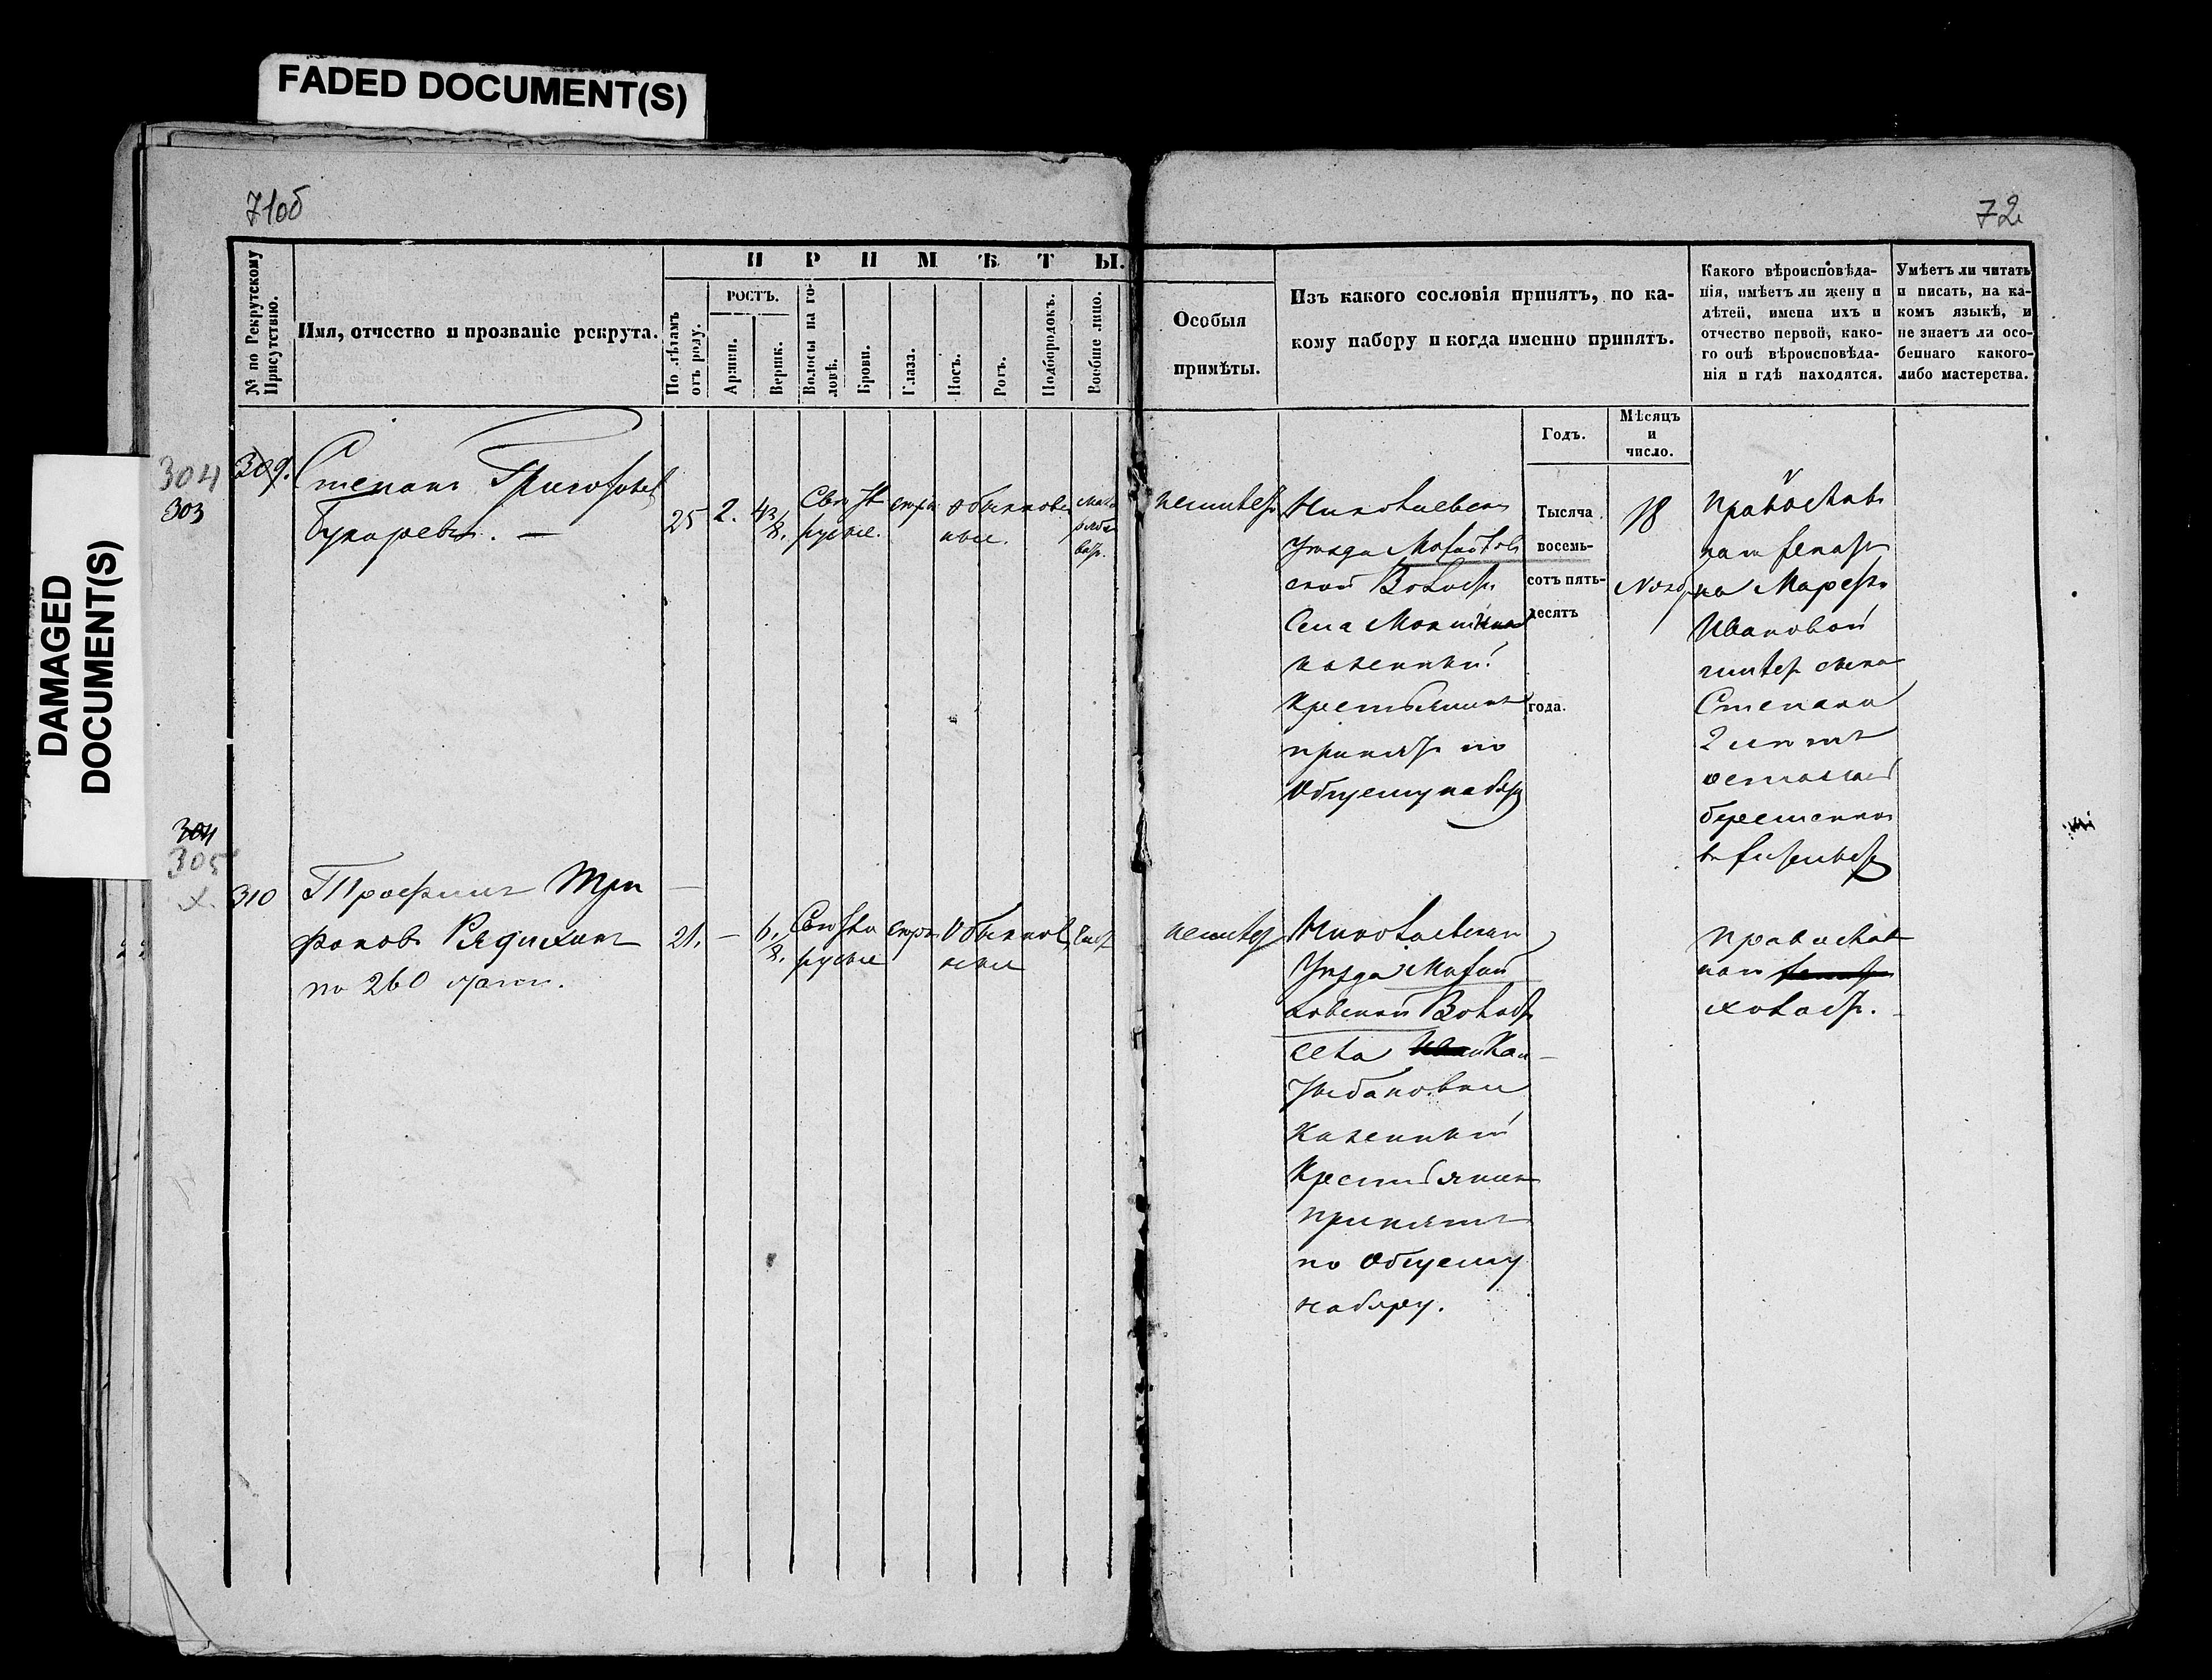 FADED DOCUMENT(S)
DAMAGED
DOCUMENT(S)
71об
72
№ по Рекрутскому
Присутствію.
Имя, отчество и прозваніе рекрута.
ПРИМѢТЫ.
По лѣтамъ
отъ роду.
РОСТЪ.
Аршин.
Вершк.
Волосы на го-
ловѣ.
Брови.
Глаза.
Носъ.
Ротъ.
Подбородокъ.
Вообще лицо.
Особыя
примѣты.
Изъ какого сословія принятъ, по ка-
кому набору и когда именно принятъ.
Годъ.
Мѣсяцъ
и
число.
Какого вѣроисповѣда-
нія, имѣетъ ли жену и
дѣтей, имена ихъ и
отчество первой, како-
го онѣ вѣроисповѣда-
нія и гдѣ находятся.
Умѣетъ ли читать
и писать, на ка-
комъ языкѣ, и
не знаетъ ли осо-
беннаго какого-
либо мастерства.
304
303
309.
Степанъ Григорьевъ
Бухаревъ. —
25
2.
4 3/8.
Свѣтло
русые.
обыкновен
ные.
неимѣетъ
Николаевскаго
Уѣзда
ской Волости
Села
казенный
Крестьянинъ
принятъ по
Общему набору
Тысяча
восемь-
сотъ пять-
десятъ
года.
18
Православ
наго женатъ
на
Ивановой
имѣетъ сына
Степана
2 лѣтъ
жена
304
305
310
Трофимъ Три
фоновъ
по 260 стати.
21.
—
6/8.
Свѣтло
русые
Обыкнов
ные
чист
неимѣетъ
Николаевскаго
Уѣзда
Волости
села
Казенный
Крестьянинъ
принятъ
по Общему
набору.
Православ
наго
холостъ.